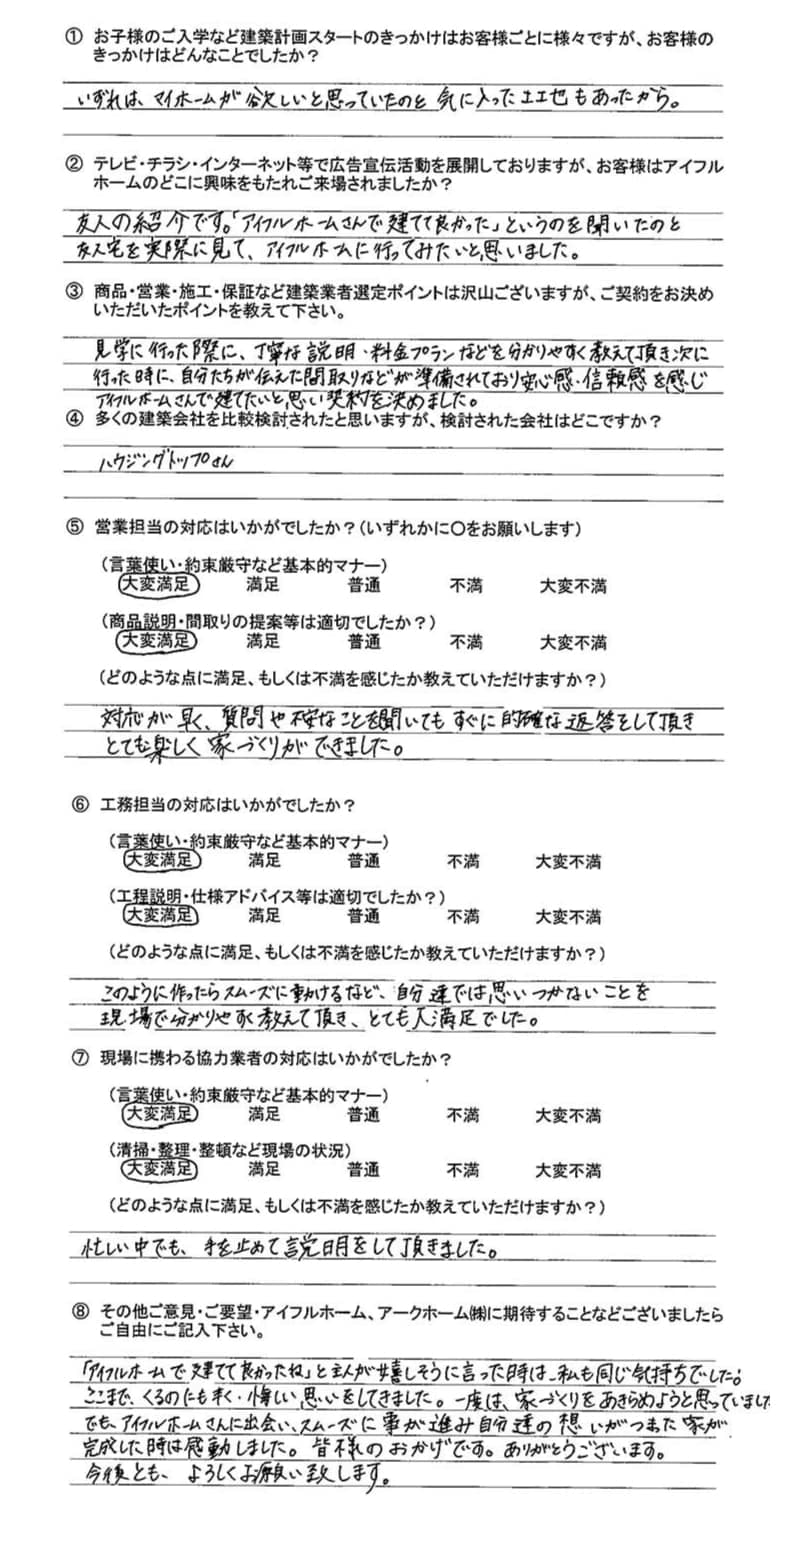 ① お子様のご入学など建築計画スタートのきっかけはお客様ごとに様々ですが、お客様の
きっかけはどんなことでしたか？
いずれは、マイホームが欲しいと思っていたのと 気に入った土地もあったから。
② テレビ・チラシ・インターネット等で広告宣伝活動を展開しておりますが、お客様はアイフル
ホームのどこに興味をもたれご来場されましたか？
友人の紹介です。「アイフルホームさんで建てて良かった」というのを聞いたのと
友人宅を実際に見て、アイフルホームに行ってみたいと思いました。
③ 商品・営業・施工・保証など建築業者選定ポイントは沢山ございますが、ご契約をお決め
いただいたポイントを教えて下さい。
見学に行った際に、丁寧な説明・料金プランなどを分かりやすく教えて頂き次に
行った時に、自分たちが伝えた間取りなどが準備されており安心感・信頼感を感じ
アイフルホームさんで建てたいと思い契約を決めました。
④ 多くの建築会社を比較検討されたと思いますが、検討された会社はどこですか？
ハウジングトップさん
⑤ 営業担当の対応はいかがでしたか？(いずれかに〇をお願いします)
(言葉使い・約束厳守など基本的マナー)
大変満足 満足 普通 不満 大変不満
(商品説明・間取りの提案等は適切でしたか？)
大変満足 満足 普通 不満 大変不満
(どのような点に満足、もしくは不満を感じたか教えていただけますか？)
対応が早く、質問や不安なことを聞いてもすぐに的確な返答をして頂き
とても楽しく家づくりができました。
⑥ 工務担当の対応はいかがでしたか？
(言葉使い・約束厳守など基本的マナー)
大変満足 満足 普通 不満 大変不満
(工程説明・仕様アドバイス等は適切でしたか？)
大変満足 満足 普通 不満 大変不満
(どのような点に満足、もしくは不満を感じたか教えていただけますか？)
このように作ったらスムーズに動けるなど、自分達では思いつかないことを
現場で分かりやすく教えて頂き、とても大満足でした。
⑦ 現場に携わる協力業者の対応はいかがでしたか？
(言葉使い・約束厳守など基本的マナー)
大変満足 満足 普通 不満 大変不満
(清掃・整理・整頓など現場の状況)
大変満足 満足 普通 不満 大変不満
(どのような点に満足、もしくは不満を感じたか教えていただけますか？)
忙しい中でも、手を止めて説明をして頂きました。
⑧ その他ご意見・ご要望・アイフルホーム、アークホーム㈱に期待することなどございましたら
ご自由にご記入下さい。
「アイフルホームで建てて良かったね」と主人が嬉しそうに言った時は、私も同じ気持ちでした。
ここまで、くるのにも辛く・悔しい思いをしてきました。一度は、家づくりをあきらめようと思っていました
でも、アイフルホームさんに出会い、スムーズに事が進み自分達の想いがつまった家が
完成した時は感動しました。皆様のおかげです。ありがとうございます。
今後とも、よろしくお願い致します。